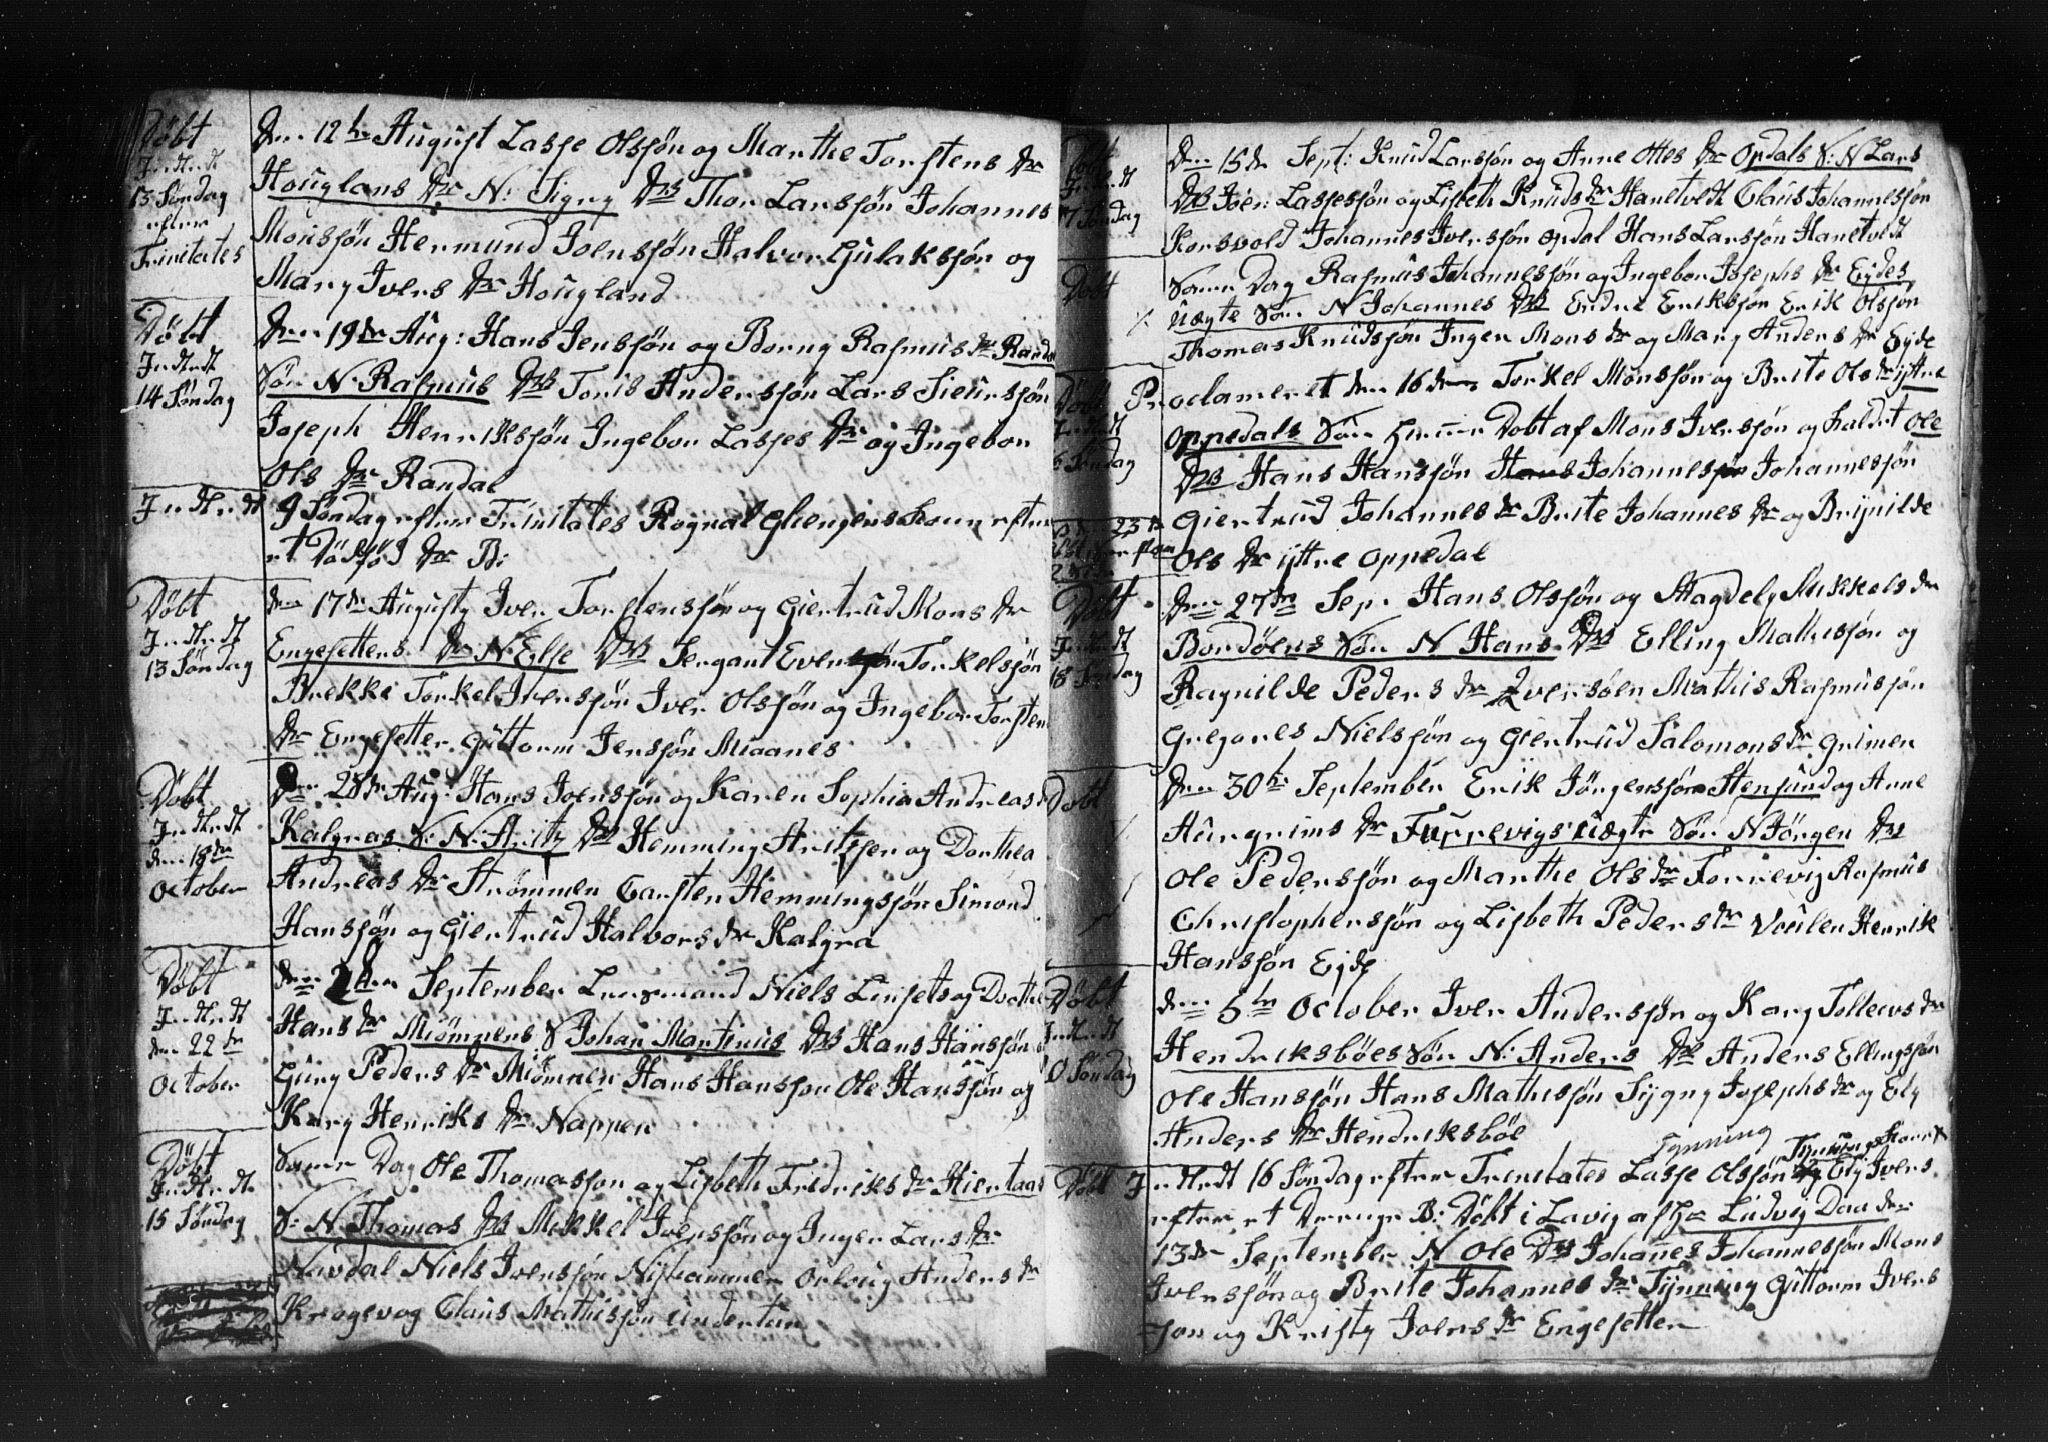 Döbt
Jntrdt
13 Söndag
efter
Trinitates
den 12te August Lasse Olssøn og Marthe Torstens dr
Houglans dr N: Signy Ds Thor Larssøn Johannes
Monssøn Hermund Joenssøn Halvor Gulakssøn og
Mary Ivers dr Hougland
Döbt
Jntrdt
14 Söndag
den 19de Aug: Hans Jenssøn og Borny Rasmus dr Randal
Søn N Rasmus Ds Joris Anderssøn Lars Siurssøn
Joseph Henrikssøn Ingebor Lasses dr og Ingebor
Ols dr Randal
Jntrdt
9 Søndag efter Trinitates Rognal Kone efter
et Dödfød dr B:
Döbt
Jntrdt
13 Söndag
den 17de Augusty Iver Torstenssøn og Giertrud Mons dr
Engesetters dr N Else Ds Sergant Even Torkelssøn
Brekke Torkel Iverssøn Iver Olssøn og Ingebor Torstens
dr Engesetter Guttorm Jenssøn Miaanes
Döbt
Jntrdt
den 18de
October
den 28de Aug: Hans Joenssøn og Karen Sophia Andreas
Kalgras S: N: Anitz Ds Hemming Anitzsen og Dorthea
Andreas dr Strømmen Carsten Hemmingssøn Simond
Hanssøn og Giertrud Halvors dr Kalgra
Döbt
Jntrdt
den 22de
October
den September Lensmand Niels Linsets og Dorthe
Hans dr Miømnens S Johan Martinus Ds Hans Hanssøn
Guny Peders dr Miømnen Hans Hanssøn Ole Hanssøn og
Kary Henriks dr Nappen
Döbt
Jntrdt
15 Söndag
Samme Dag Ole Thomassøn og Lisbeth Fredriks dr Hiertaas
S: N Thomas Ds Mikkel Iverssøn og Inger Lars dr
Navdal Niels Iverssøn Nyhammer Orloug Anders dr
Kragevog Claus Mathissøn undertun
Jntrdt
17 Söndag
den 15de Sept: Knud Larssøn og Anne Ottes dr Opdals S: N Lars
Ds Joen Lassessøn og Lisbeth Knuds dr Hanetvedt Claus Johannessøn
Korsvold Johannes Iverssøn opdal Hans Larssøn Hanetvedt
Döbt
Samme Dag Rasmus Johannessøn og Ingebor Josephs dr Eydes
Uægte Søn N Johannes Ds Endre Erikssøn Erik Olssøn
Thomas Knudssøn Inger Mons dr og Mary Anders dr Eyde
Döbt
Jntrdt
Söndag
Proclameret den 16de Torkel Monssøn og Brite Ols dr ijttre
Oppedals Søn Døbt af Mons Iverssøn og kaldet Ole
Ds Hans Hanssøn Johannessøn
Giertrud Johannes dr Brite Johannes dr og Brynilde
Ols dr ijttre Oppedal
Döbt
Jntrdt
18 Söndag
den 27de Sep: Hans Olssøn og Magdely Mikkels dr
Bordöens Søn N Hans Ds Elling Mathissøn og
Ragnilde Peders dr Mathis Rasmussøn
Gregores Nielssøn og Giertrud Salomons dr Grimen
Döbt
den 30te September Erik Jörgenssøn Stensund og Anne
dr Furrevigs uægte Søn N Jörgen Ds
Ole Pederssøn og Marthe Ols dr Forrevig Rasmus
Christopherssøn og Lisbeth Peders dr Henrik
Hanssøn Eyde
Döbt
Jntrdt
Söndag
den 5te October Iver Anderssøn og Kary Tollevs dr
Hendriksböes Søn N: Anders Ds Anders Ellingssøn
Ole Hanssøn Hans Mathissøn Sygny Josephs dr og Ely
Anders dr Hendriksböe
Tynning
Döbt Jntrdt 16 Söndag efter Trinitates Lasse Olssøn Ely Ivers
efter et Drenge B: Döbt i Lavig af Hr Ludvig Daa den
13de September N Ole Ds Johanes Johannessøn Mons
Iverssøn og Brite Johannes dr Tynning Guttorm Ivers
søn og Kristy Joens dr Engesetter